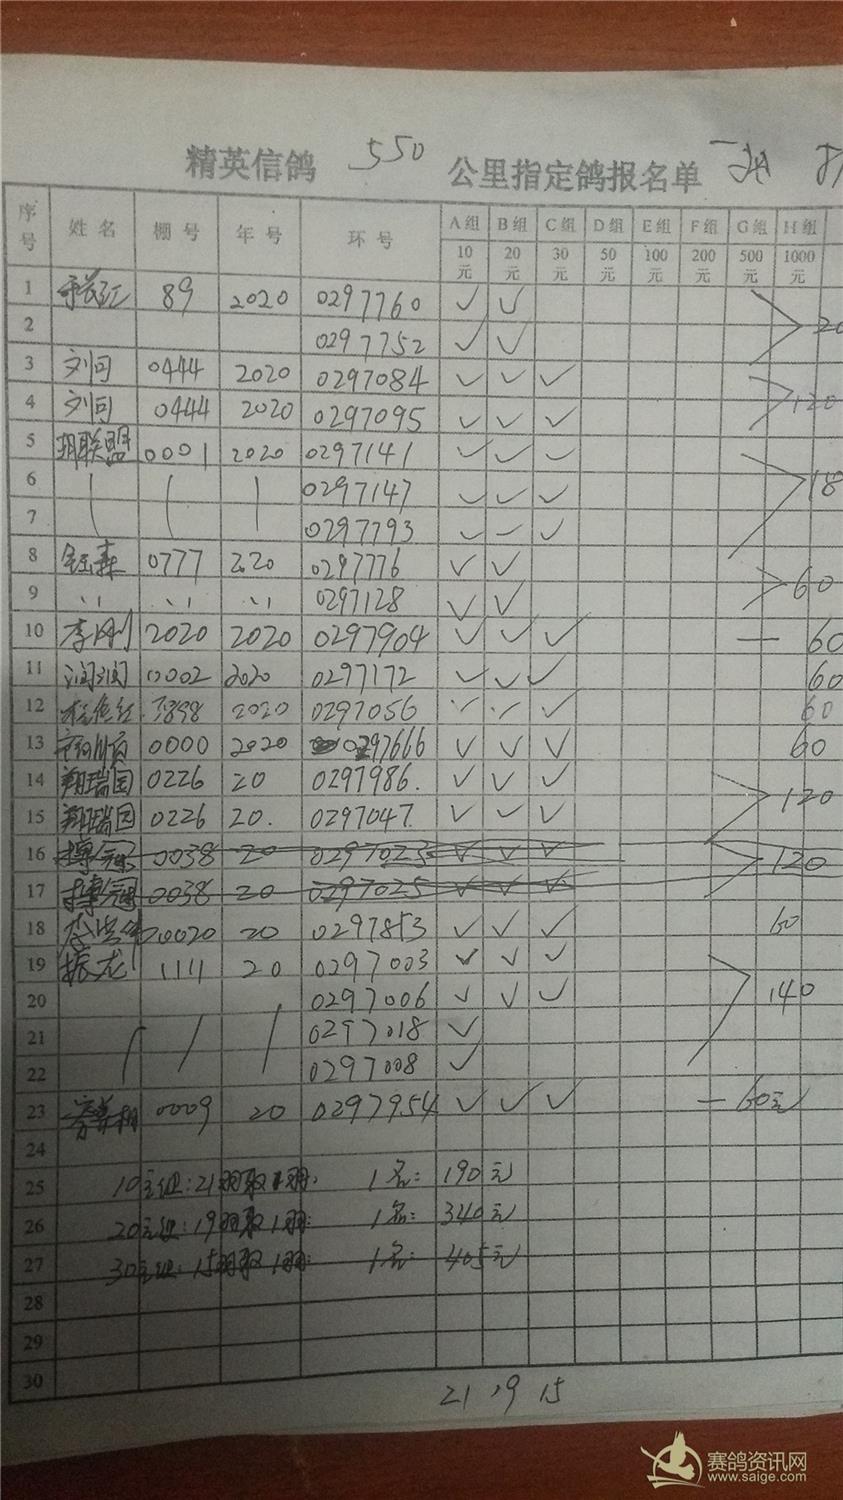 精英信鸽 550 公里指定鸽报名单
序号 姓名 棚号 年号 环号 A组 B组 C组 D组 E组 F组 G组 H组
10元 20元 30元 50元 100元 200元 500元 1000元
1 89 2020 0297760 ✓ ✓ 20
2 0297752 ✓ ✓
3 刘同 0444 2020 0297084 ✓ ✓ ✓ 120
4 刘同 0444 2020 0297095 ✓ ✓ ✓
5 联盟 0001 2020 0297141 ✓ ✓ ✓ 18
6 0297147 ✓ ✓ ✓
7 0297793 ✓ ✓ ✓
8 森 0777 2020 0297776 ✓ ✓ 60
9 0297128 ✓ ✓
10 李刚 2020 2020 0297904 ✓ ✓ ✓ — 60
11 润润 0002 2020 0297172 ✓ ✓ ✓ 60
12 2020 0297056 ✓ ✓ ✓ 60
13 0000 2020 0297666 ✓ ✓ ✓ 60
14 翔瑞园 0226 20 0297986. ✓ ✓ ✓ 120
15 翔瑞园 0226 20. 0297047. ✓ ✓ ✓
16 0038 20 0297023 ✓ ✓ ✓ 120
17 0038 20 0297025 ✓ ✓ ✓
18 0020 20 0297853 ✓ ✓ ✓ 60
19 振龙 1111 20 0297003 ✓ ✓ ✓ 140
20 0297006 ✓ ✓ ✓
21 0297018 ✓
22 0297008 ✓
23 0009 20 0297954 ✓ ✓ ✓ — 60元
24
25 10元组:21羽取1羽: 1名: 190元
26 20元组:19羽取1羽: 1名: 340元
27 30元组:15羽取1羽: 1名: 405元
28
29
30
21 19 15
赛鸽资讯网
www.saige.com